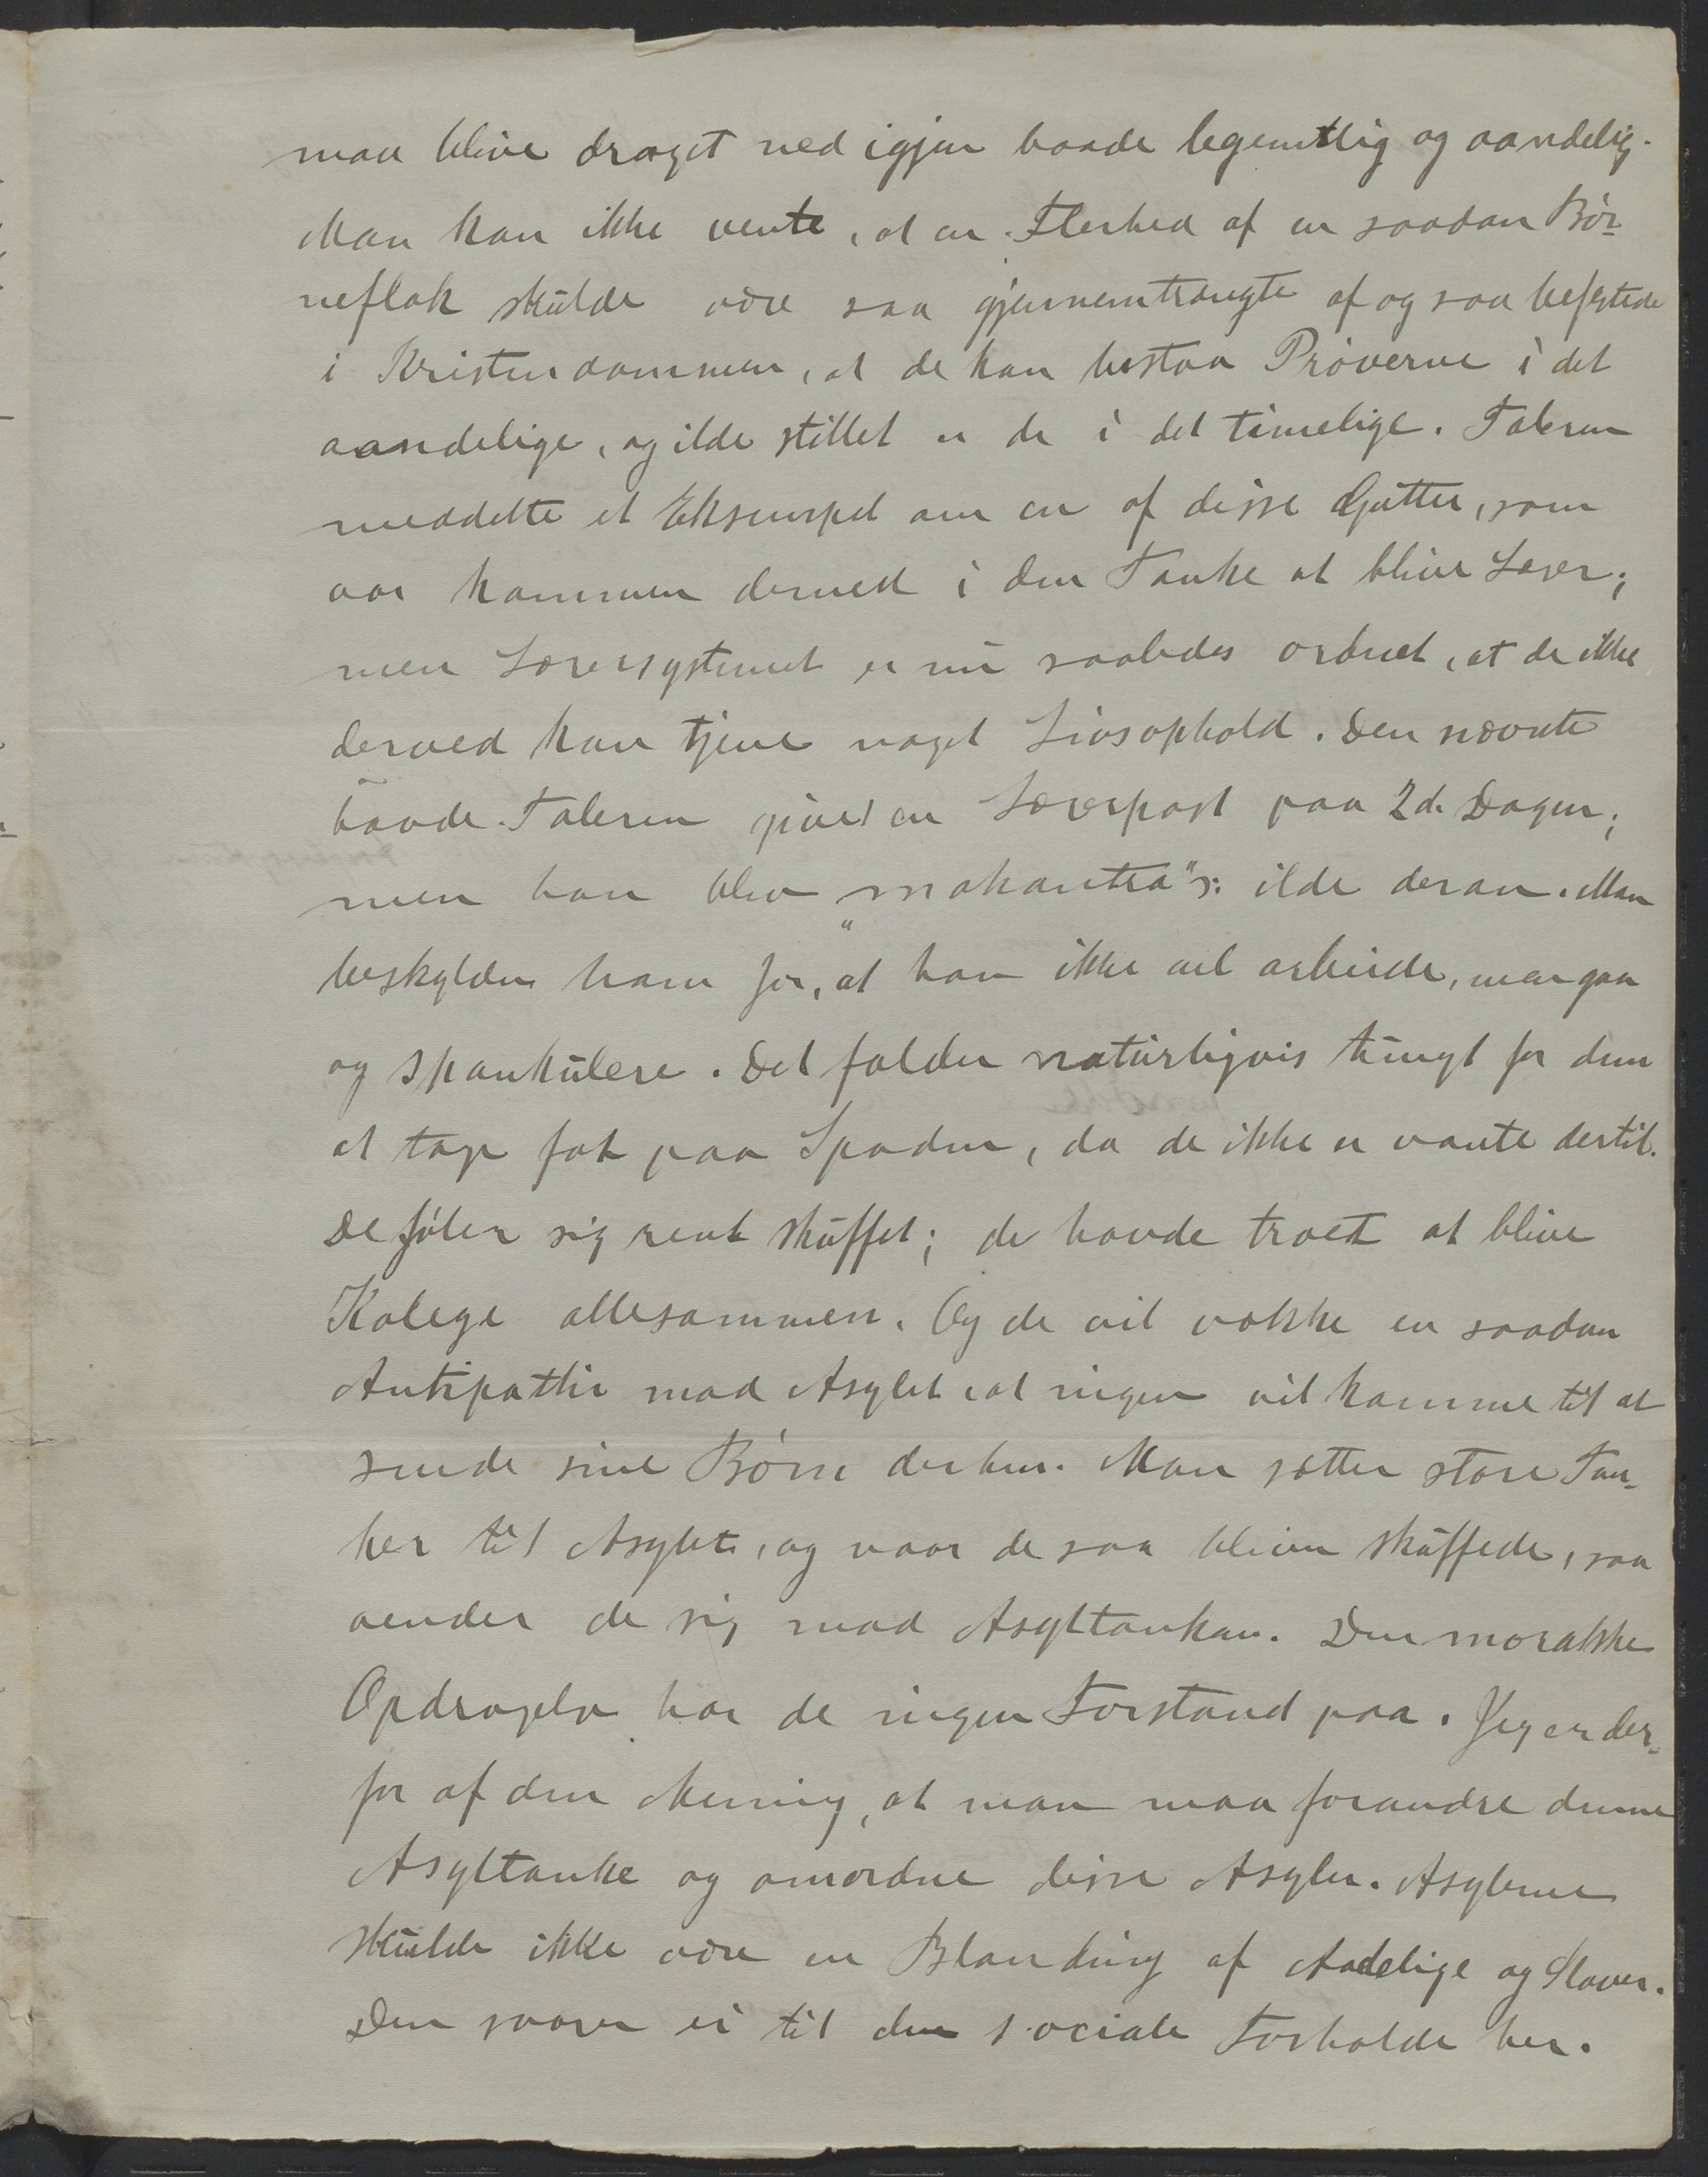 maa blive draget ned igjen baade legemtlig og aandelig.
Man kan ikke vente, at en Flerhed af en saadan Bør-
neflok skulde være saa gjennemtrængte af og saa befæstede
i Kristendommen, at de kan bestaa Prøverne i det
aandelige, og ilde stillet er de i det timelige. Taleren
meddelte et Eksempel om en af disse Gutter, som
var kommen derned i den Tanke at blive Lærer;
men Lærersystemet er nu saaledes ordnet, at de ikke
derved kan tjene noget Livsophold. Den nævnte
havde Taleren givet en Lærerpost paa 2 d. Dagen;
men han blev "mahantra" ɔ: ilde deran. Man
beskylder ham for, at han ikke vil arbeide, men gaa
og spankulere. Det falder naturligvis tungt for dem
at tage fat paa Spaden, da de ikke er vante dertil.
De føler sig rent skuffet; de havde troet at blive
Kolege allesammen. Og de vil vække en saadan
Antipathi mod Asylet, at ingen vil komme til at
sende sine Børn derhen. Man sætter store Tan-
ker til Asylet, og naar de saa bliver skuffede, saa
vender de sig mod Asyltanken. Den moralske
Opdragelse har de ingen Forstand paa. Jeg er der-
for af den Mening, at man maa forandre denne
Asyltanke og omordne disse Asyler. Asylerne
skulde ikke være en Blanding af Aadelige og Slaver.
Den svarer ei til den sociale Forholde her.